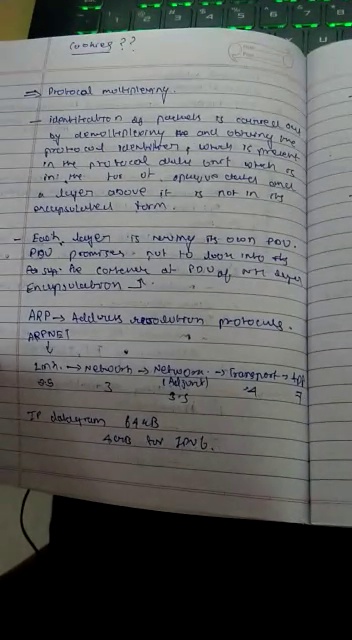 Cookies ??
⇒ Protocol multiplexing.
- identification of packets is carried out
by demultiplexing the and obtaining the
protocol identifier, which is present
in the protocol data unit which is
in the for of opaque data and
a layer above it is not in its
encapsulated form.
- Each layer is having its own PDU.
PDU promises not to look into the
the content of PDU of Nth layer
Encapsulation ↑.
ARP → Address resolution protocols.
ARPNET
↓
Link → Network → Network → Transport → App
2.5 3 (Adjunct) 4 7
3.5
IP datagram 64 kB
4GB for IPv6.